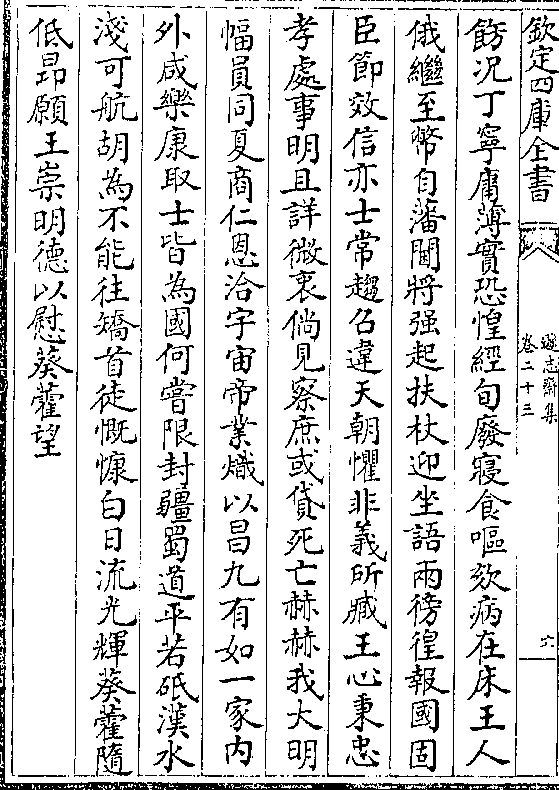 欽定四庫全書
遜志齋集
卷二十三
六
飭况丁寧庸薄實恐惶經旬廢寢食嘔欬病在床王人
俄繼至幣自藩閫將强起扶杖迎坐語兩徬徨報國固
臣節效信亦士常趨召違天朝懼非義所臧王心秉忠
孝處事明且詳微衷倘見察庶或貸死亡赫赫我大明
幅員同夏商仁恩洽宇宙帝業熾以昌九有如一家内
外咸樂康取士皆為國何嘗限封疆蜀道平若砥漢水
淺可航胡為不能往矯首徒慨慷白日流光輝葵藿隨
低昂願王崇明德以慰葵藿望